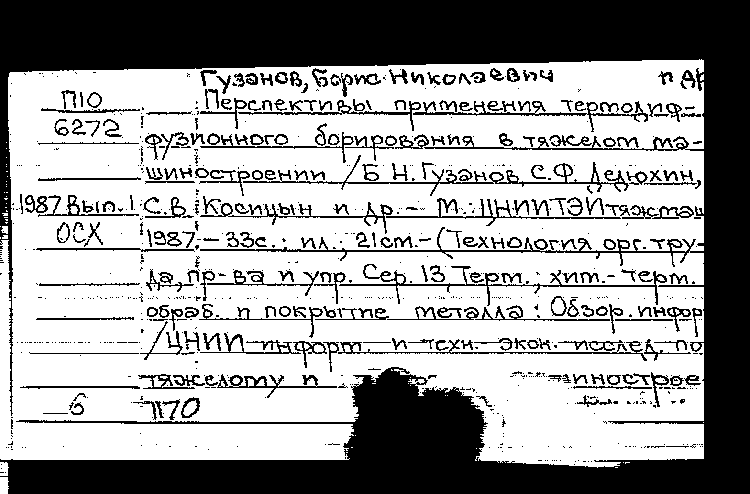 Гузанов, Борис Николаевич и др
П10 Перспективы применения термодиф-
6272 фузионного борирования в тяжелом ма-
шиностроении / Б Н. Гузанов, С.Ф. Дедюхин,
1987 Вып.1 С.В. Косицын и др. – М.: ЦНИИТЭИтяжмаш
ОСХ 1987. – 33с.: ил.; 21см. – (Технология, орг. тру-
да, пр-ва и упр. Сер. 13, Терм.; хим.-терм.
обраб. и покрытие металла: Обзор. информ
/ЦНИИ информ. и техн.-экон. исслед. по
тяжелому и иностроe
6 П70